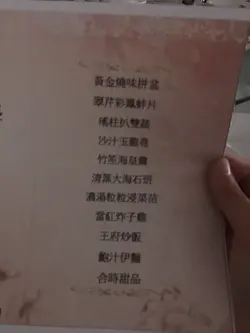 黃金燒味拼盆
翠芹彩鳳蚌片
瑤柱扒雙蔬
沙汁玉龍卷
竹笙海皇羹
清蒸大海石班
濃湯粒粒浸菜苗
當紅炸子雞
王府炒飯
鮑汁伊麵
合時甜品